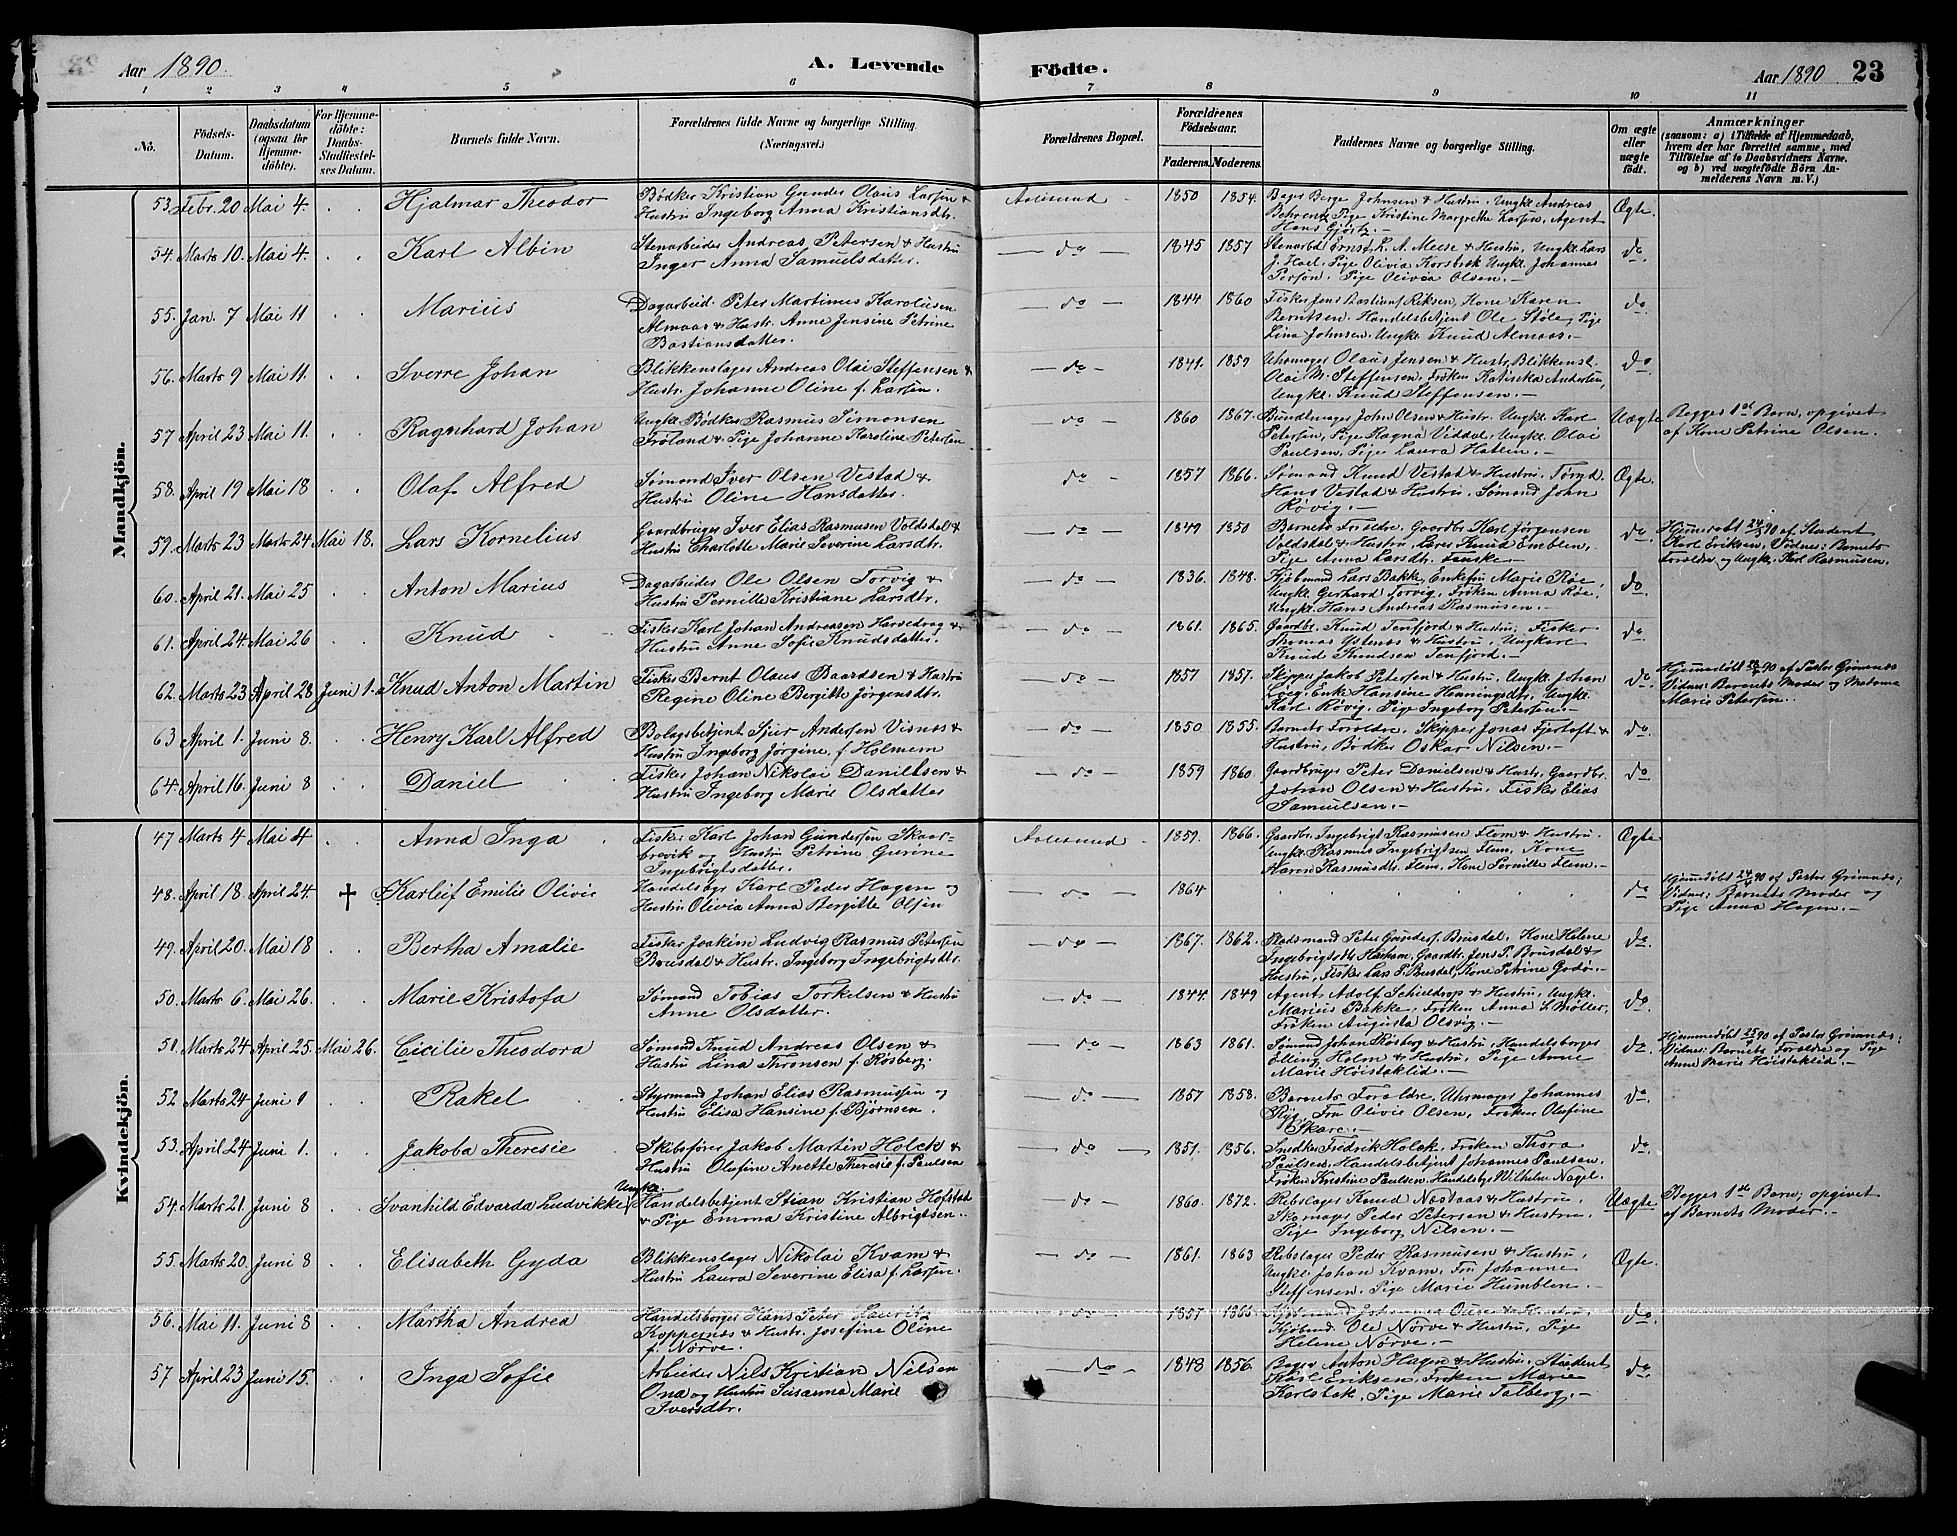 Aar 1890. A. Levende Födte. Aar 1890 23
1 2 3 4 5 6 7 8 9 10 11
No. Födsels-Datum. Daabsdatum (ogsaa for Hjemmedöbte). For Hjemmedöbte: Daabs-Stadfæstelses Datum. Barnets fulde Navn. Forældrenes fulde Navne og borgerlige Stilling. (Næringsvei.) Forældrenes Bopæl. Forældrenes Födselsaar. Faderens. Moderens. Faddernes Navne og borgerlige Stilling. Om ægte eller uægte födt. Anmærkninger (saasom: a) i Tilfælde af Hjemmedaab, hvem der har forrettet samme, med Tilföielse af to Daabsvidners Navne. og b) ved uægtefödte Börn Anmelderens Navn m. V.)
Mandkjön.
53. Febr. 20 Mai 4. Hjalmar Theodor Bødker Kristian Gunder Olaus Larsen & Aalesund 1850 1854. Bager Berge Johnsen & Hustru, Ungkl Andreas Ægte.
Hustru Ingeborg Anna Kristiansdtr. Behrentz, Pige Kristine Margrethe Larsen, Agent
Hans Gjörtz.
54. Marts 10. Mai 4. Karl Albin Stenarbeider Andreas Petersen & Hustru do 1845 1857 Stenarbd. Ernst L. A. Melse & Hustru, Ungkl. Lars do.
Inger Anna Samuelsdatter. J. Hoel. Pige Olivia Korsbæk Ungkl. Johannes
Persøn. Pige Olivia Olsen.
55. Jan. 7 Mai 11 Marius Dagarbeid. Peter Martinus Karolusen do 1844 1860 Fisker Jens Bastians Riksen, Kone Karen do
Almaas & Hustr. Anne Jensine Petrine Berntsen. Handelsbetjent Ole Støle, Pige
Bastiansdatter. Lina Johnsen. Ungkl. Knud Almaas.
56. Marts 9 Mai 11. Sverre Johan Blikkenslager Andreas Olai Steffensen & do 1841. 1859 Uhrmager Olaus Jensen & Hustr, Blikkensl. do
Hustr. Johanne Oline f. Larsen. Olai M. Steffensen, Frøken Andersen,
Ungkl. Knud Steffensen.
57 April 23 Mai 11. Ragnhard Johan Ungkl. Bødker Rasmus Simonsen do 1860 1867. Bundtmager John Olsen & Hustr. Ungkl. Karl Uægte Begges 1st Barn, opgivet
Frøland & Pige Johanne Karoline Petersen Petersen, Pige Ragna Viddal, Ungkl. Olai af Kone Petrine Olsen.
Paulsen, Pige Laura Hatlen.
58. April 19 Mai 18 Olaf Alfred Sømand Iver Olsen Vestad & do 1857 1866. Sømand Knud Vestad & Hustru. Ægte.
Hustru Oline Hansdatter. Hans Vestad & Hustru. Sømand John
Røvig.
59. Marts 23 Marts 24 Mai 18. Lars Kornelius Gaardbruger Iver Elias Rasmusen Voldsdal & do 1849 1850 Barnets Foraldre, Gaardbr. Karl Jörgensen do. Hjemmedøbt 24/3 90 af Student
Hustru Charlotte Marie Severine Larsdtr. Voldsdal & Hustru, Lars Knud Emblem, Karl Eriksen, Vidner: Barnets
Pige Anna Larsdtr. Fenske. Foraldre og Ungkl. Karl Rasmusen.
60. April 21. Mai 25 Anton Marius Dagarbeider Ole Olsen Torvig & do 1836. 1848. Kjøbmand Lars Bakke, Enkefru Marie Røe, do
Hustru Pernille Kristiane Larsdtr. Ungkl. Gerhard Torvig, Frøken Anna Røe,
Ungkl. Hans Andreas Rasmusen.
61. April 24. Mai 26 Knud Fisker Karl Johan Andreasen & do 1861. 1865. Gaardbr. Knud Tenfjord & Hustru, Fisker do
Hustru Anne Sofie Knudsdatter. Thomas Ystenæs & Hustru, Ungkarl
Knud Knudsen Tenfjord.
62. Marts 23 April 28 Juni 1. Knud Anton Martin Fisker Bernt Olaus Baardsen & Hustru do 1857 1857. Skipper Jakob Petersen & Hustru. Ungkl. Johan do. Hjemmedöbt 28/4 90 af Pastor Grimnæs
Regine Oline Bergitte Jørgensdtr. Enke Hansine Henningsdtr, Ungkl. Vidner: Barnets Moder og Madame
Karl Røvig, Pige Ingeborg Petersen. Marie Petersen.
63 April 1. Juni 8. Henry Karl Alfred Bolagsbetjent Sjur Andersen Visnæs & do 1850 1855. Barnets Foraldre, Skipper Jonas Fjertoft & do.
Hustru Ingeborg Jørgine f. Holmem Hustru, Bødker Oskar Nilsen.
64. April 16. Juni 8 Daniel Fisker Johan Nikolai Danielsen & do 1859 1860 Gaardbruger Peter Danielsen & Hustr. Gaardbr. do.
Hustru Ingeborg Marie Olsdatter Johan Olsen & Hustru. Fisker Elias
Samuelsen.
Kvindekjön.
47 Marts 4 Mai 4 Anna Inga Fisker Karl Johan Gundersen Skaar- Aalesund 1859. 1866. Gaardbr. Ingebrigt Rasmusen Flem & Hustru. Ægte
brevik og Hustru Petrine Gurine Ungkl. Rasmus Ingebrigtsen Flem, Kone
Ingebrigtsdatter. Karen Rasmusdtr. Flem, Kone Pernille Flem.
48. April 18. April 24. † Karleif Emilie Olivie Handelsbgr Karl Peder Hagen og do 1864 do Hjemmedöbt 24/4 90 af Pastor Grimnæs;
Hustru Olivia Anna Bergitte Olsen Vidner: Barnets Moder og
Pige Anna Hagen.
49. April 20. Mai 18 Bertha Amalie Fisker Joakim Ludvig Rasmus Petersen do 1867. 1862. Pladsmand Peter Gunders. Brusdal, Kone Helene do.
Brusdal & Hustr. Ingeborg Ingebrigtsdtr. Ingebrigtsdtr. Harham, Gaardbr. Jens P. Brusdal &
Hustru, Fisker Lars P. Brusdal, Kone Petrine Godø.
50. Marts 6. Mai 26. Marie Kristofa Sømand Tobias Torkelsen & Hustru do 1844. 1849 Agent Adolf Schieldrop & Hustru, Ungkl. do.
Anne Olsdatter. Marius Bakke, Frøken Anna S. Møller,
Frøken Augusta Olsvig.
51. Marts 24 April 25. Mai 26. Cicilie Theodora Sømand Knud Andreas Olsen & do 1863 1861. Sømand Johan Rosberg & Hustru, Handelsborger do. Hjemmedöbt 25/4 90 af Pastor Grimnæs;
Hustru Lina Thronsen f. Rosberg. Elling Holm & Hustru, Pige Anne Vidner: Barnets Foraldre og Pige
Marie Höistaklid. Anne Marie Höistaklid.
52 Marts 24 Juni 1 Rakel Styrmand Johan Elias Rasmussen og do 1857 1858. Barnets Foraldre, Uhrmager Johannes do.
Hustru Elisa Hansine f. Björnsen. Fru Olivie Olsen, Frøken Olufine
Skare.
53. April 24 Juni 1. Jakoba Theresie Skibsfører Jakob Martin Holck & do 1851. 1856. Snedker Fredrik Holck. Frøken Thora do.
Hustru Olufine Anette Theresie f. Paulsen Paulsen, Handelsbetjent Johannes Paulsen.
Frøken Kristine Paulsen. Handelsbgr. Wilhelm Nagel.
54. Marts 21. Juni 8 Svanhild Edvarda Ludvikke Ungkl. Handelsbetjent Stian Kristian Hofstad do 1860. 1872. Rebslager Knud Næstaas & Hustru, Uægte Begges 1st Barn; opgivet
& Pige Emma Kristine Albrigtsen. Skomager Peder Petersen & Hustru. af Barnets Moder.
Pige Ingeborg Nilsen.
55. Marts 20. Juni 8 Elisabeth Gyda Blikkenslager Nikolai Kvam & do 1861. 1863 Rebslager Peder Rasmusen & Hustru, Ægte.
Hustru Laura Severine Elisa f. Larsen. Ungkl. Johan Kvam. Fru Johanne
Steffensen. Pige Marie Humblen.
56. Mai 11. Juni 8 Martha Andrea Handelsborger Hans Peter Laurits do 1857 Johannes & Hustru, do.
Koppernæs & Hustr. Josefine Oline Kjøbmd. Ole Nørve & Hustru, Pige
f. Nørve. Helene Nørve.
57 April 23 Juni 15. Inga Sofie Arbeider Nils Kristian Nilsen do 1848 1856. Bager Anton Hagen & Hustru, Student do
Ona og Hustru Susanna Marie Karl Eriksen, Frøken Marie
Iversdtr. Karlsbak, Pige Marie Talberg.